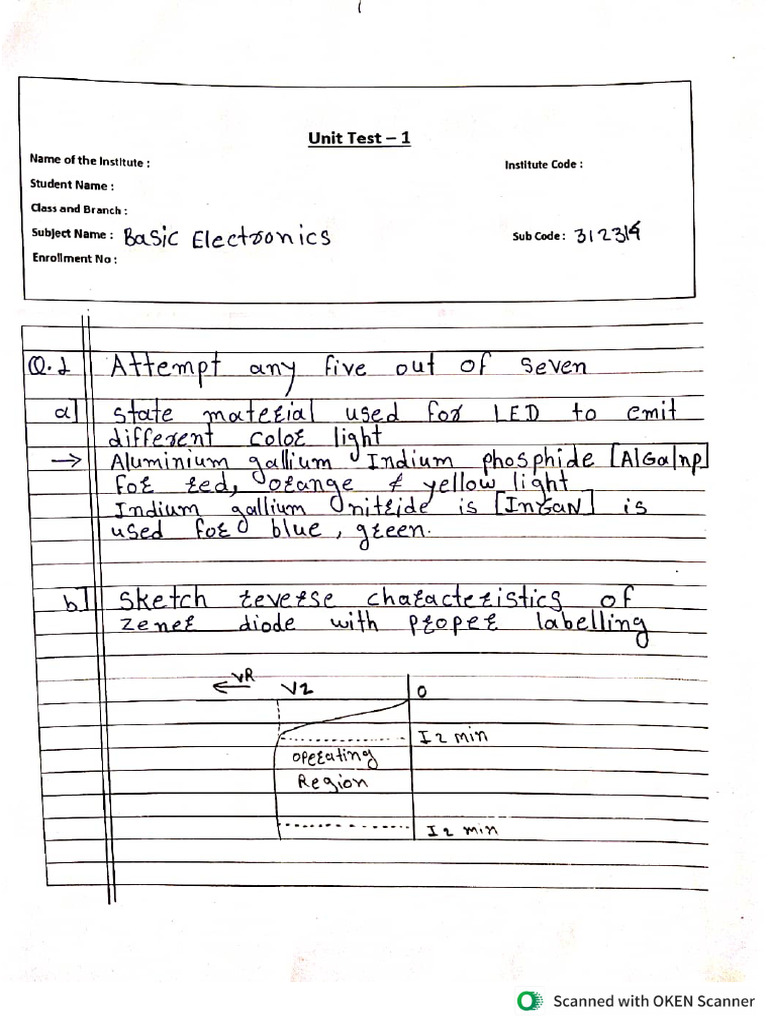 Unit Test – 1
Name of the Institute :
Institute Code :
Student Name :
Class and Branch :
Subject Name : Basic Electronics
Sub Code : 312314
Enrollment No :
Q.1 Attempt any five out of seven
a] state material used for LED to emit
different color light
→ Aluminium gallium Indium phosphide [AlGaInp]
for red, orange & yellow light
Indium gallium nitride is [InGaN] is
used for blue, green.
b] Sketch reverse characteristics of
zener diode with proper labelling
← VR VZ 0
IZ min
operating
Region
IZ min
Scanned with OKEN Scanner